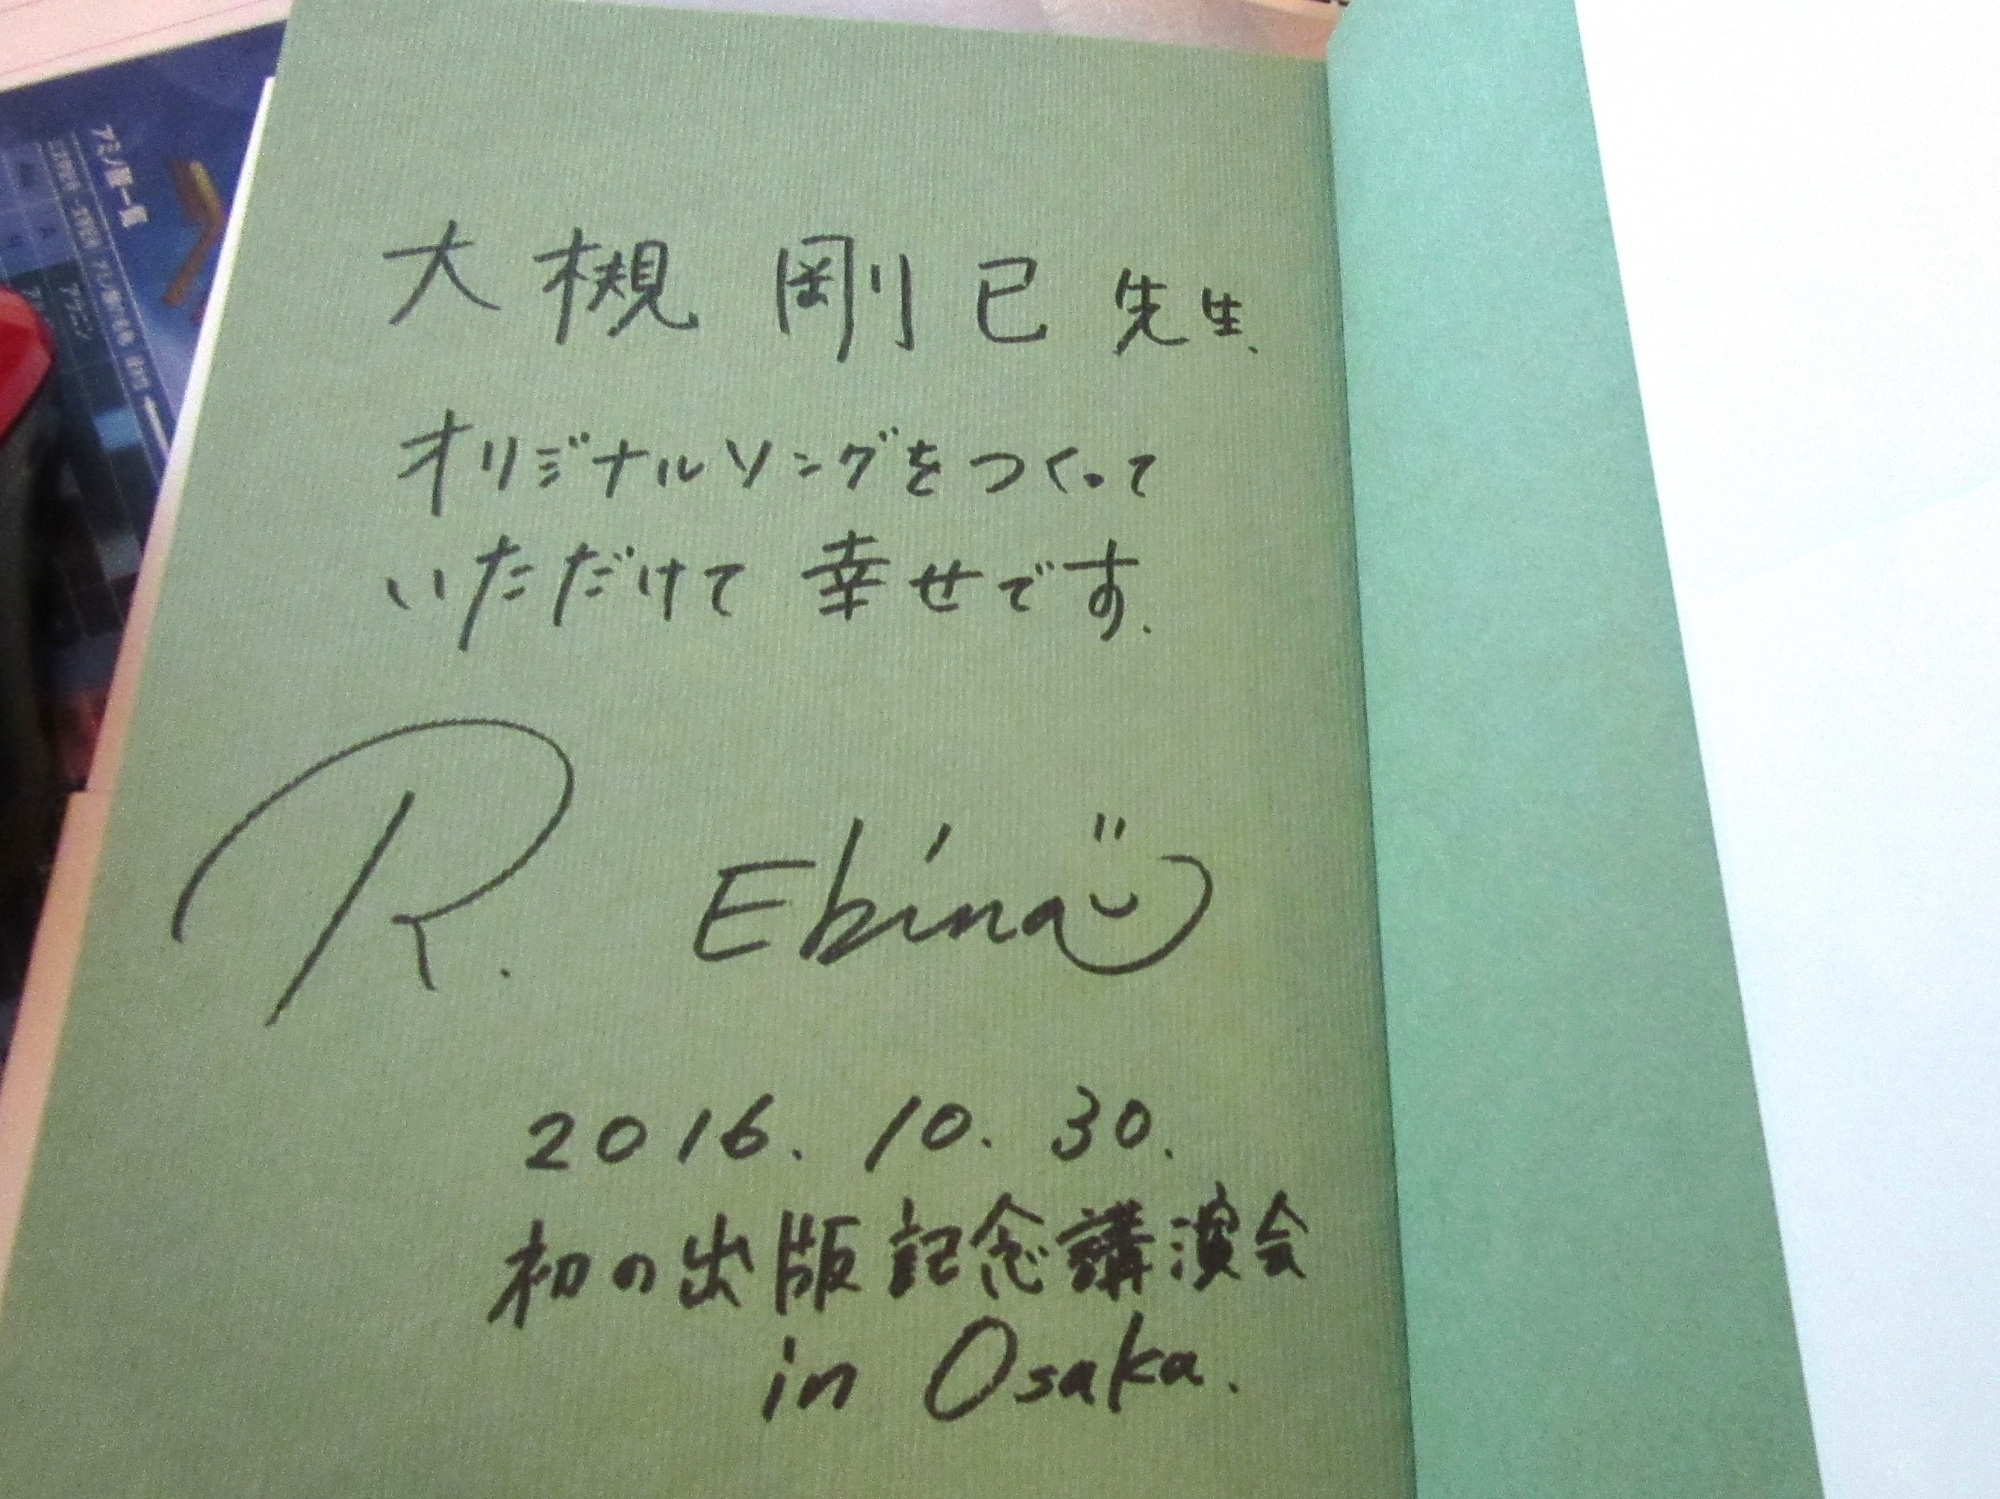 大槻 剛己 先生、
オリジナルソングをつくって
いただけて 幸せです.
R. Ebina
2016. 10. 30.
初の出版記念講演会
in Osaka.
アミノ酸一覧